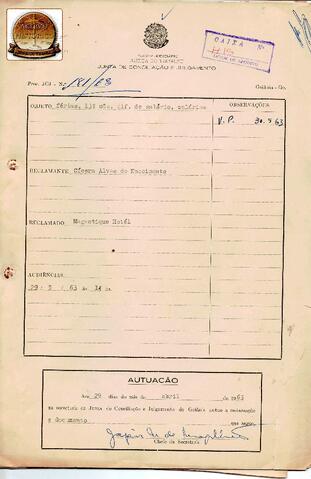 JUSTIÇA DO TRABALHO
JUNTA DE CONCILIAÇÃO E JULGAMENTO
CAIXA Nº
Proc. JCJ - Nº 581/63 Goiânia - Go.
OBJETO férias, 13º mês, dif. de salário, salários
OBSERVAÇÕES
V.P. 30.5.63
RECLAMANTE Cícero Alves do Nascimento
RECLAMADO Magestique Hotél
AUDIÊNCIAS
29 / 5 / 63 às 14 hs.
AUTUAÇÃO
Aos 29 dias do mês de abril de 1963
na secretaria da Junta de Conciliação e Julgamento de Goiânia autuo a reclamação
e documento que segue
Chefe da Secretaria